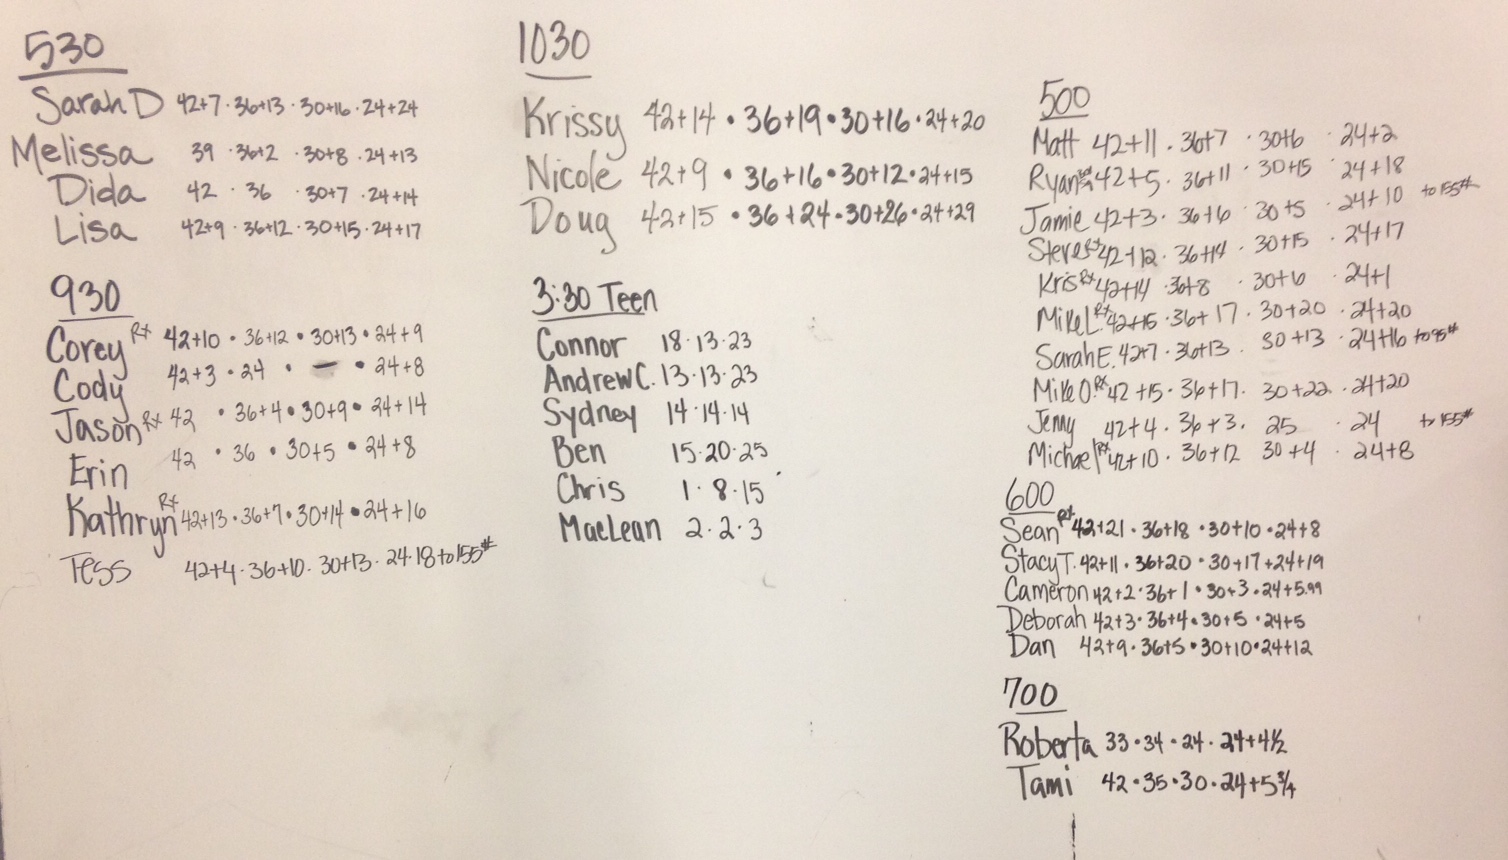 530
Sarah D 42+7 · 36+13 · 30+16 · 24+24
Melissa 39 · 36+2 · 30+8 · 24+13
Dida 42 · 36 · 30+7 · 24+14
Lisa 42+9 · 36+12 · 30+15 · 24+17
930
Corey Rx 42+10 · 36+12 · 30+13 · 24+9
Cody 42+3 · 24 · — · 24+8
Jason Rx 42 · 36+4 · 30+9 · 24+14
Erin 42 · 36 · 30+5 · 24+8
Kathryn Rx 42+13 · 36+7 · 30+14 · 24+16
Tess 42+4 · 36+10 · 30+13 · 24·18 to 155#
1030
Krissy 42+14 · 36+19 · 30+16 · 24+20
Nicole 42+9 · 36+16 · 30+12 · 24+15
Doug 42+15 · 36+24 · 30+26 · 24+29
3:30 Teen
Connor 18·13·23
Andrew C. 13·13·23
Sydney 14·14·14
Ben 15·20·25
Chris 1·8·15
MacLean 2·2·3
500
Matt 42+11 · 36+7 · 30+6 · 24+2
Ryan 42+5 · 36+11 · 30+15 24+18
Jamie 42+3 · 36+6 · 30+5 · 24+10 to 155#
Steve Rx 42+12 · 36+14 · 30+15 · 24+17
Kris Rx 42+14 · 36+8 · 30+6 · 24+1
Mike L. Rx 42+15 · 36+17 · 30+20 · 24+20
Sarah E. 42+7 · 36+13 · 30+13 · 24+16 to 95#
Mike O. Rx 42+15 · 36+17 · 30+22 · 24+20
Jenny 42+4 · 36+3 · 25 · 24 to 155#
Michael Rx 42+10 · 36+12 30+4 · 24+8
600
Sean Rx 42+21 · 36+18 · 30+10 · 24+8
Stacy T. 42+11 · 36+20 · 30+17 +24+19
Cameron 42+2 · 36+1 · 30+3 · 24+5.99
Deborah 42+3 · 36+4 · 30+5 · 24+5
Dan 42+9 · 36+5 · 30+10 · 24+12
700
Roberta 33 · 34 · 24 · 24+4½
Tami 42 · 35 · 30 · 24+5¾